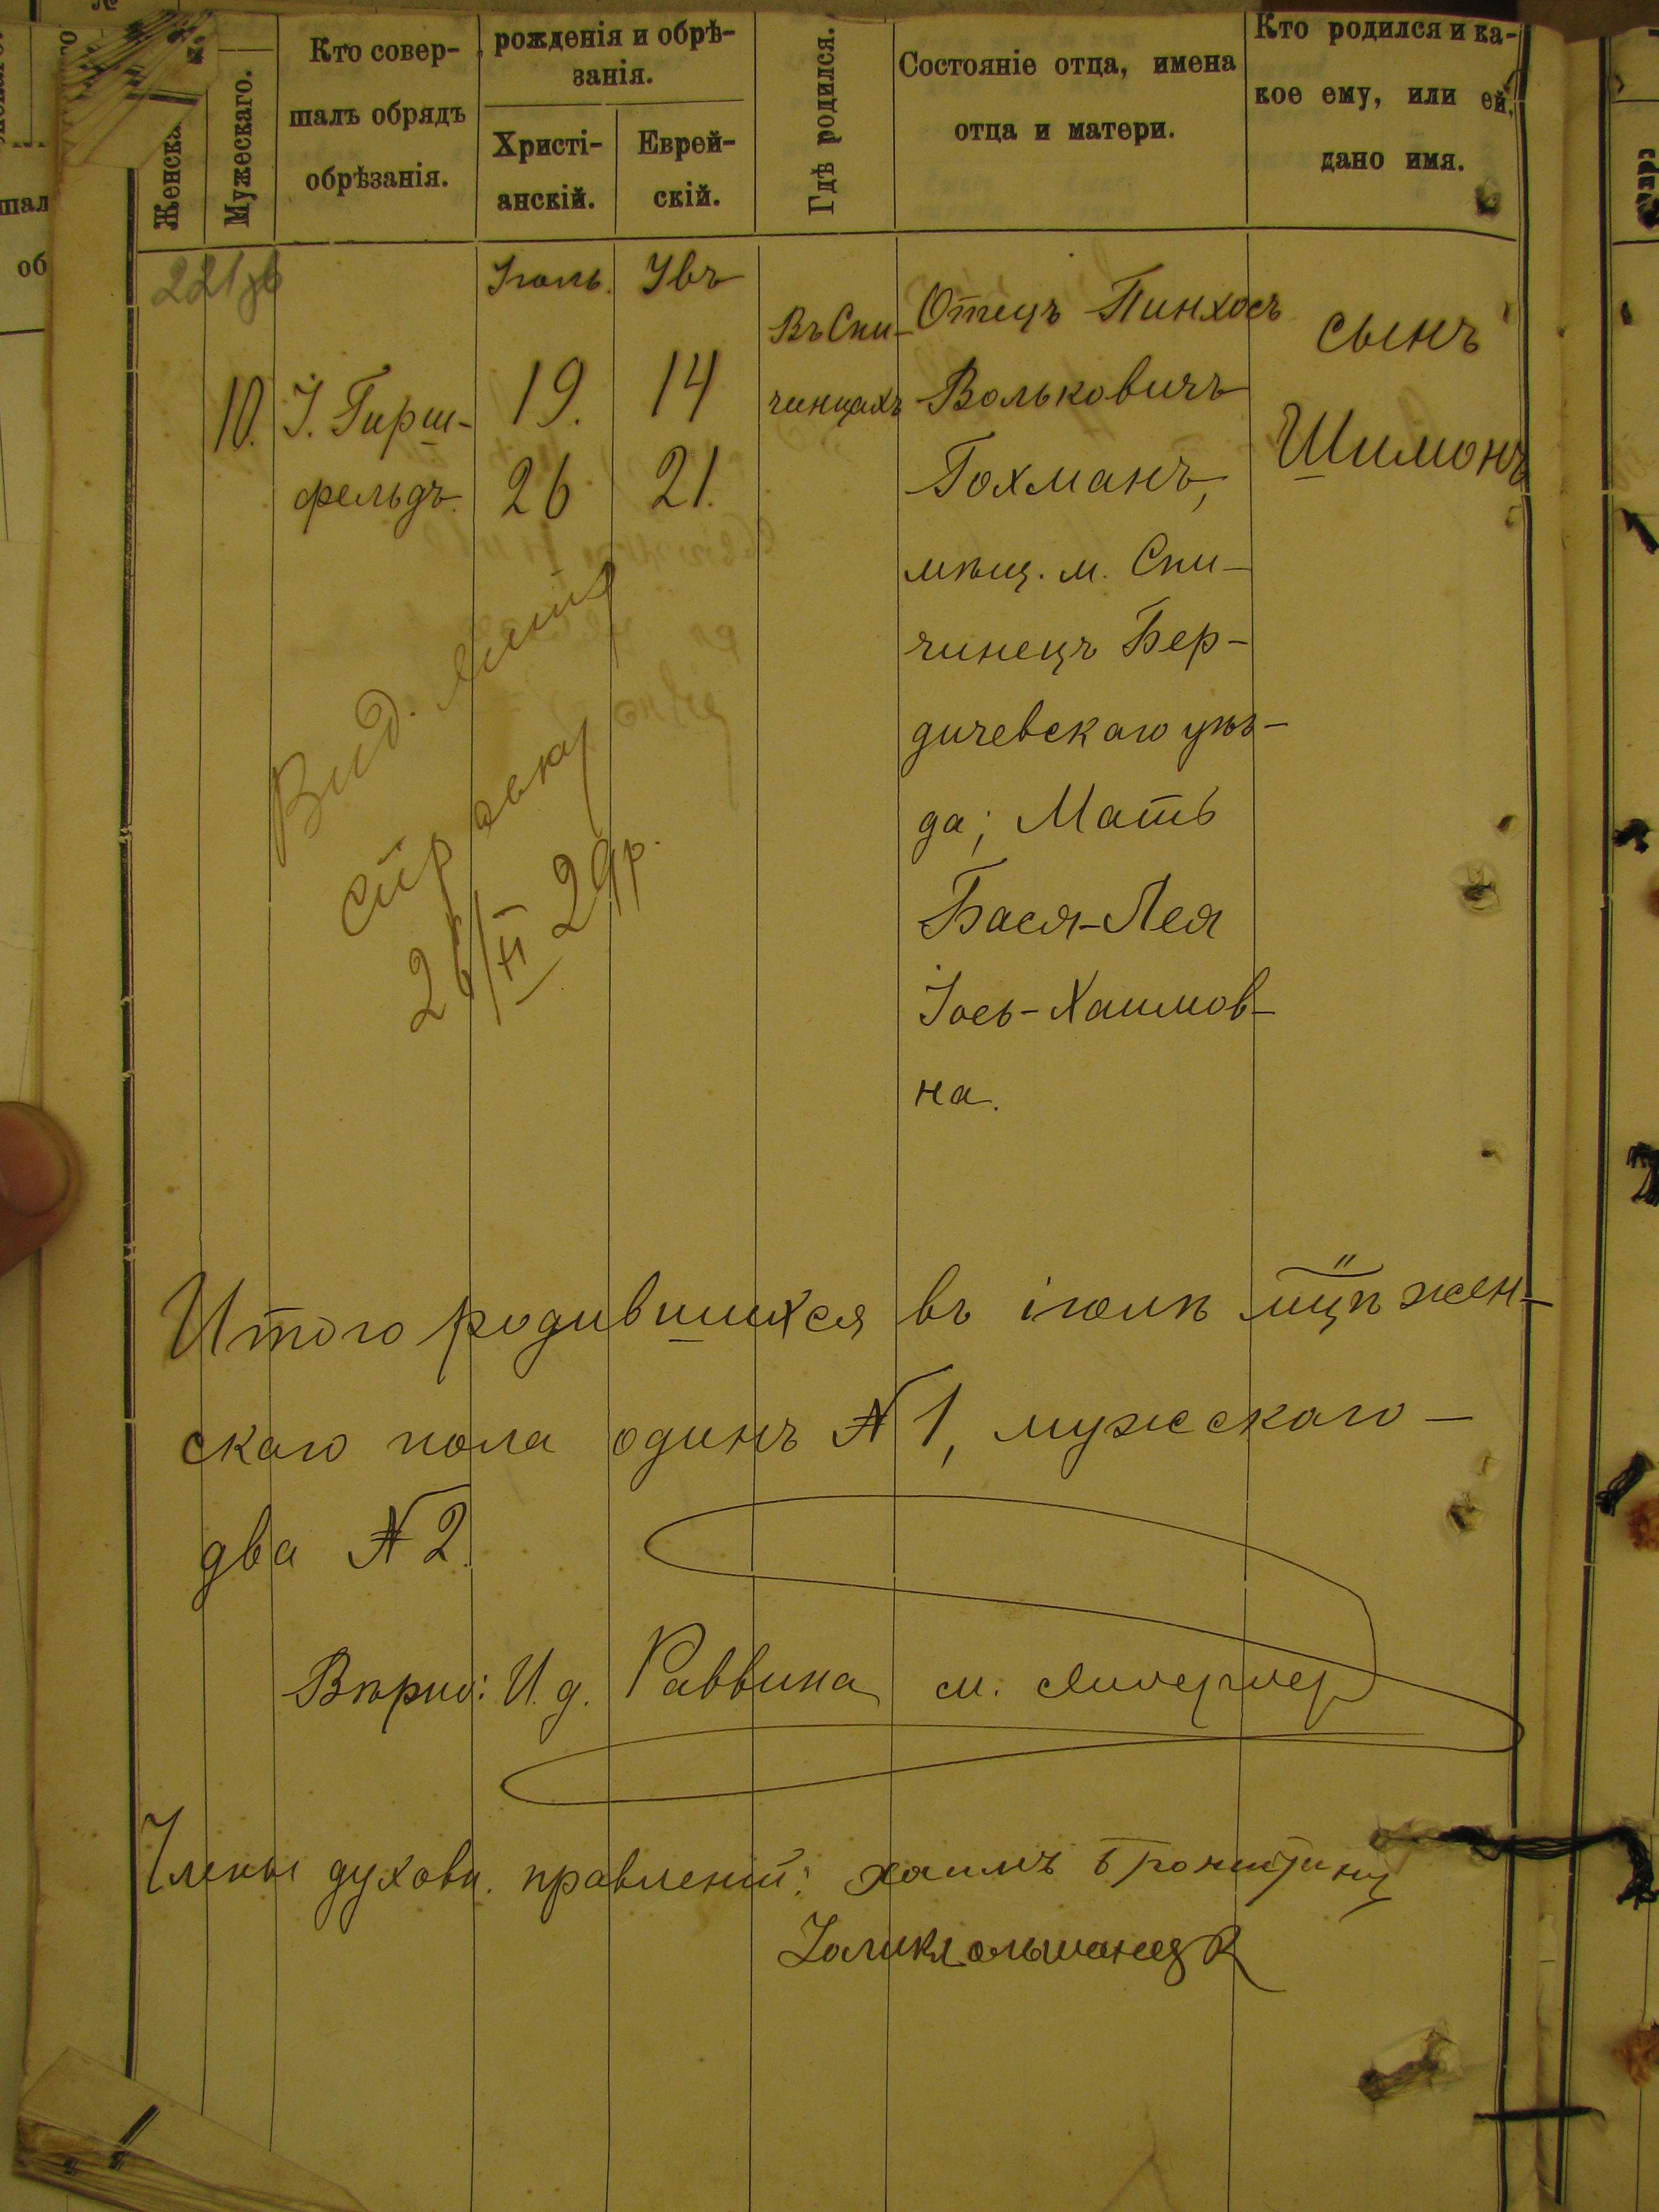 Женска
Мужескаго.
Кто совер-
шалъ обрядъ
обрѣзанія.
рожденія и обрѣ-
занія.
Христі-
анскій.
Еврей-
скій.
Гдѣ родился.
Состояніе отца, имена
отца и матери.
Кто родился и ка-
кое ему, или ей,
дано имя.
Іюль.
10.
І. Гирш-
фельдъ.
19.
26
14
21.
Въ Спи-
чинцахъ
Отецъ Пинхосъ
Вольковичъ
Гохманъ,
мѣщ. м. Спи-
чинецъ Бер-
дичевскаго уѣз-
да; Мать
Бася-Лея
Іось-Хаимов-
на.
сынъ
Шимонъ
Вид.
26/II 29р.
Итого родившихся въ іюлѣ мцѣ жен-
скаго пола одинъ № 1, мужскаго -
два № 2.
Вѣрно: И. д. Раввина м.
Члены духовн. правленій: Хаимъ